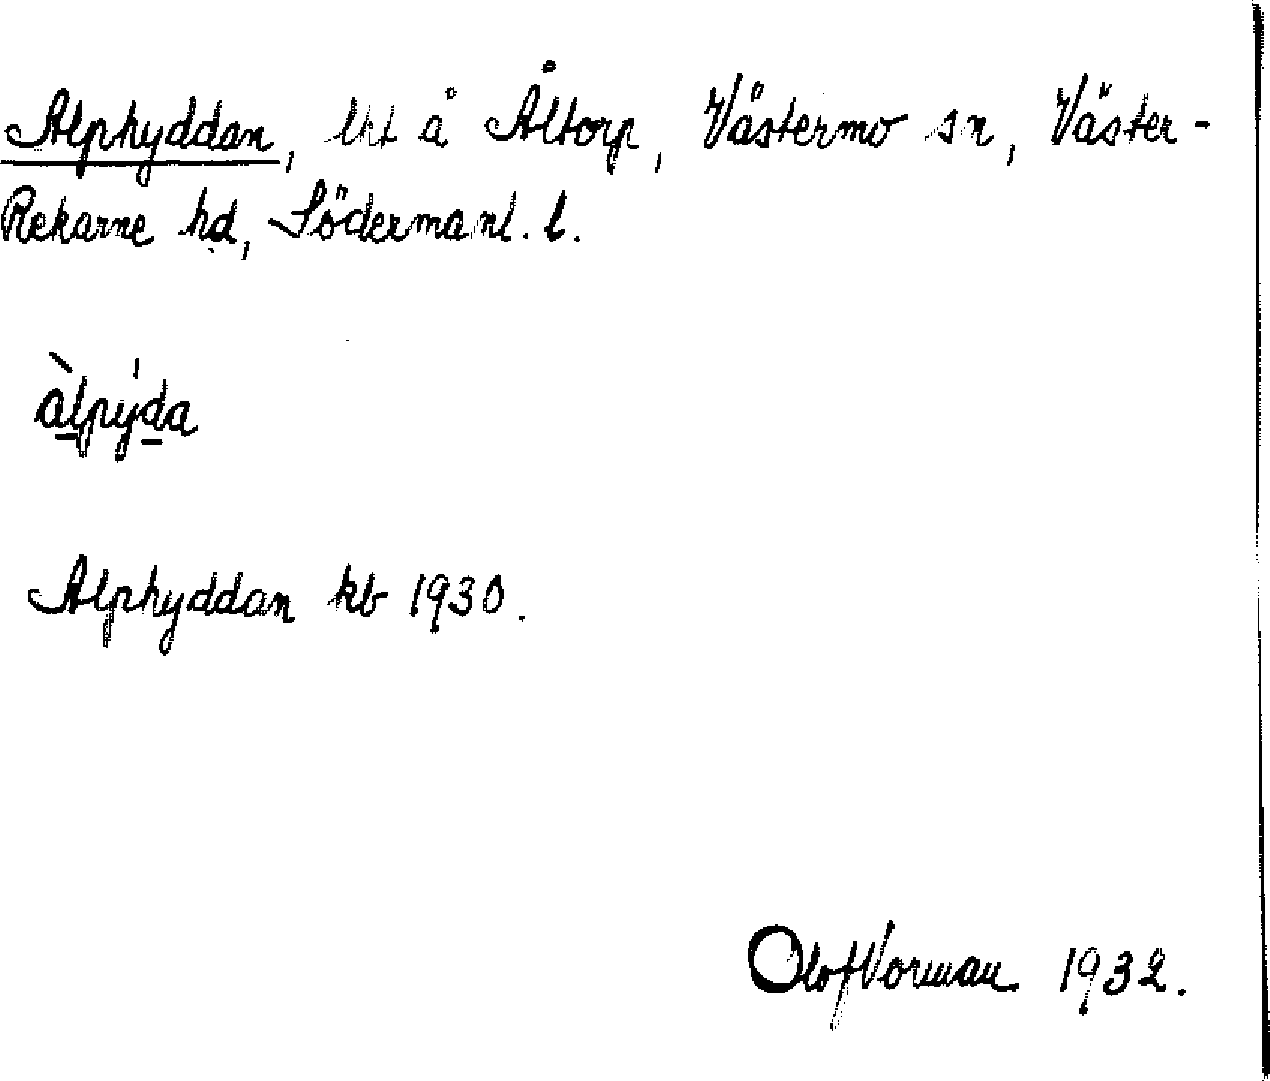 Alphyddan, lht å Åltorp, Västermo sn, Väster-
Rekarne hd, Södermanl. l.
àlpy̍da
Alphyddan kb 1930.
Olof Vorman 1932.